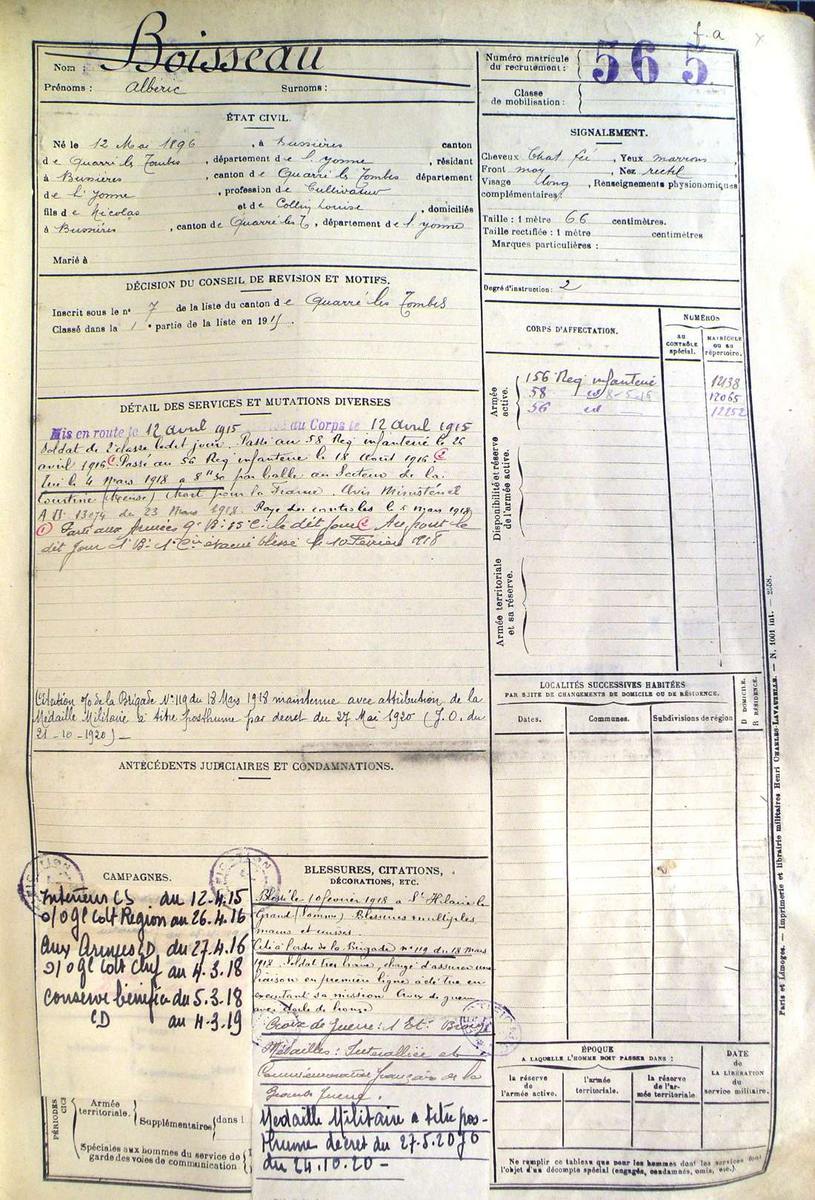 f.a
Nom : Boisseau
Prénoms : Albéric Surnoms :
Numéro matricule du recrutement : 565
Classe de mobilisation :
ÉTAT CIVIL.
Né le 12 Mai 1896, à Bussières canton
de Quarré les Tombes, département de l'Yonne, résidant
à Bussières, canton de Quarré les Tombes département
de l'Yonne, profession de Cultivateur
fils de Nicolas et de Collin Louise, domiciliés
à Bussières, canton de Quarré les T, département de l'Yonne
Marié à
SIGNALEMENT.
Cheveux Chat fcé, Yeux marrons,
Front moy, Nez rectil
Visage long, Renseignements physionomiques
complémentaires:
Taille : 1 mètre 66 centimètres.
Taille rectifiée : 1 mètre centimètres
Marques particulières :
Degré d'instruction : 2
DÉCISION DU CONSEIL DE REVISION ET MOTIFS.
Inscrit sous le n° 7 de la liste du canton de Quarré les Tombes
Classé dans la 1e partie de la liste en 1915.
CORPS D'AFFECTATION.
NUMÉROS
AU CONTRÔLE spécial.
MATRICULE OU AU répertoire.
Armée active.
156 Reg infanterie
58 id 8-5-16 12065
56 id 12252
Disponibilité et réserve de l'armée active.
Armée territoriale et sa réserve.
DÉTAIL DES SERVICES ET MUTATIONS DIVERSES
Mis en route le 12 avril 1915 au Corps le 12 avril 1915
Soldat de 2e classe ledit jour. Passé au 58 Reg infanterie le 26
avril 1916 Passé au 56 Reg infanterie le 18 Août 1916
Tué le 4 Mars 1918 à 8h30 par balle au Secteur de la
Courtine (Meuse) Mort pour la France. Avis Ministériel
A N: 13074 du 23 Mars 1918. Rayé des contrôles le 5 Mars 1918
Parti aux Armées 9e B: 85 C: le dit jour
dit jour 1 B: 1 Cie évacué blessé le 10 Février 1918
Citation o/o de la Brigade N° 119 du 18 Mars 1918 maintenue avec attribution de la
Médaille Militaire à titre posthume par décret du 27 Mai 1920 (J.O. du
21-10-1920) —
LOCALITÉS SUCCESSIVES HABITÉES
PAR SUITE DE CHANGEMENTS DE DOMICILE OU DE RÉSIDENCE.
Dates. Communes. Subdivisions de région D DOMICILE. R RÉSIDENCE.
ANTÉCÉDENTS JUDICIAIRES ET CONDAMNATIONS.
CAMPAGNES.
Intérieur CS du 12.4.15
o/o Gl Cdt Region au 26.4.16
Aux Armées CD du 27.4.16
o/o Gl Cdt Chef au 4.3.18
Conserve bénéfice du 5.3.18
CD au 4-3.19
PÉRIODES
Armée territoriale.
Supplémentaires dans l
Spéciales aux hommes du service de garde des voies de communication
BLESSURES, CITATIONS,
DÉCORATIONS, ETC.
Blessé le 10 février 1918 à St Hilaire le
Grand (Somme) Blessures multiples
mains et cuisses.
Cité à l'ordre de la Brigade n° 119 du 18 mars
1918. Soldat très brave, chargé d'assurer une
liaison en première ligne a été tué en
exécutant sa mission Croix de guerre
avec étoile de bronze
Croix de Guerre : 1 Et: Bronze
Médailles : Interalliée et
Commémorative française de la
Grande Guerre.
Médaille Militaire à titre pos-
thume décret du 27.5.20
du 24.10.20 -
ÉPOQUE
A LAQUELLE L'HOMME DOIT PASSER DANS :
la réserve de l'armée active.
l'armée territoriale.
la réserve de l'armée territoriale.
DATE de LA LIBÉRATION du service militaire.
Ne remplir ce tableau que pour les hommes dont les services font
l'objet d'un décompte spécial (engagés, condamnés, omis, etc.)
Paris et Limoges. — Imprimerie et librairie militaires Henri CHARLES-LAVAUZELLE. — N. 1001 int. — 2-58.